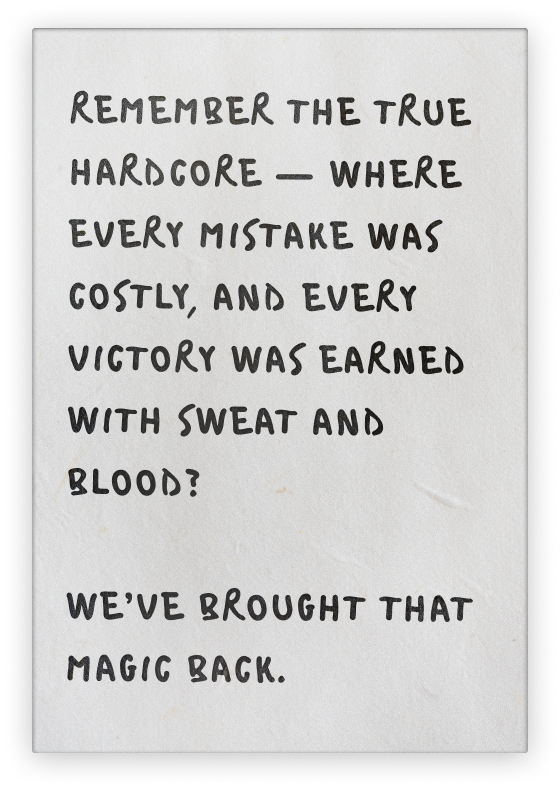 REMEMBER THE TRUE
HARDCORE — WHERE
EVERY MISTAKE WAS
COSTLY, AND EVERY
VICTORY WAS EARNED
WITH SWEAT AND
BLOOD?
WE'VE BROUGHT THAT
MAGIC BACK.